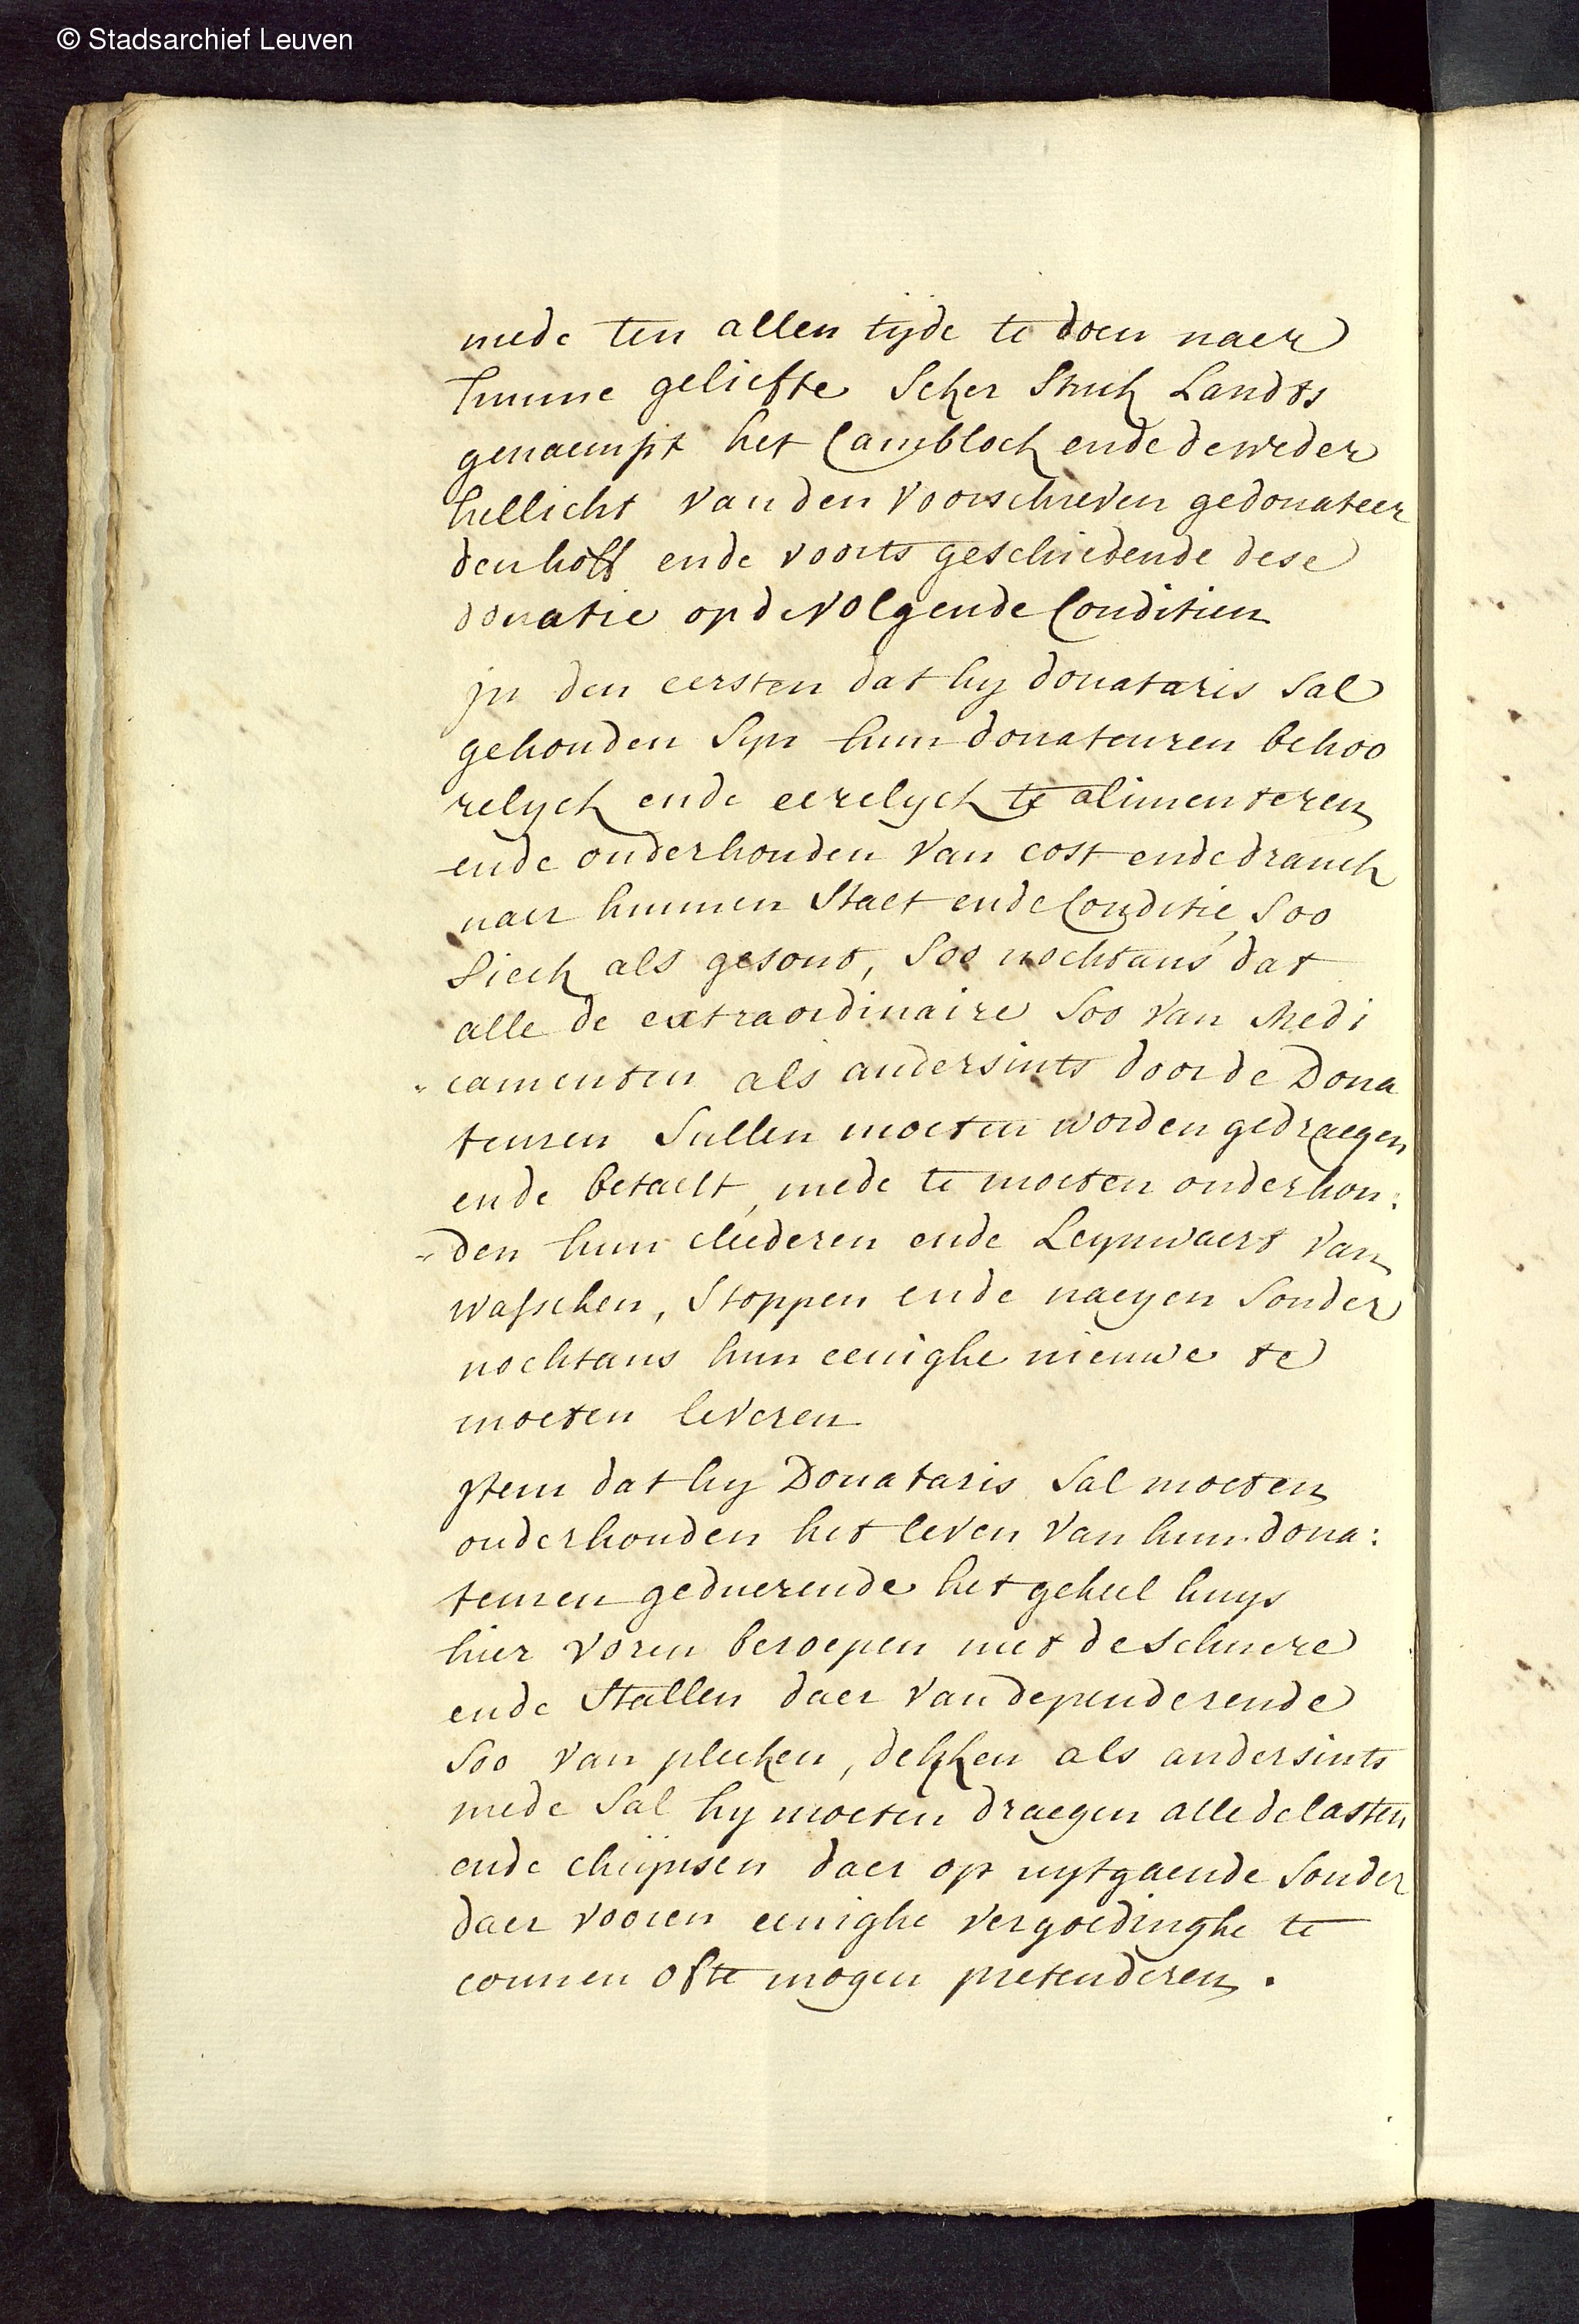 © Stadsarchief Leuven
mede ten allen tijde te doen naer
hunne geliefte Seker Stuck Landts
genaempt het Cambloch ende de weder
hellicht van den voorschreven gedonateer
den hoff ende voorts geschiedende dese
donatie op de volgende Conditien
jn den eersten dat hy donataris sal
gehouden Syn hun donateuren behoo
relyck ende eerelyck te alimenteren
ende onderhouden van cost ende dranck
naer hunnen Staet ende Conditie, Soo
Sieck als gesont, Soo nochtans dat
alle de extraordinaire Soo van Medi
camenten als andersints door de Dona
teuren Sullen moeten worden gedraegen
ende betaelt, mede te moeten onderhou:
den hun cleederen ende Leynwaert van
wasschen, Stoppen ende naeyen Sonder
nochtans hun eenighe nieuwe te
moeten leveren
jtem dat hy Donataris Sal moeten
onderhouden het leven van hun dona:
teuren geduerende het geheel huys
hier voren beroepen met de schuere
ende Stallen daer van dependerende
Soo van plecken, decken als andersints
mede Sal hy moeten draegen alle de lasten
ende chijnsen daer op uytgaende Sonder
daer vooren eenighe vergoedinghe te
connen ofte mogen pretenderen.